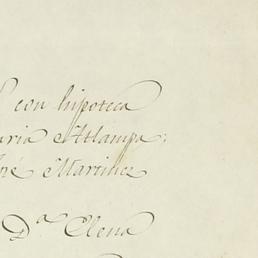 con hipoteca
aria Atlampa;
sé Martinez
D.ª Elena